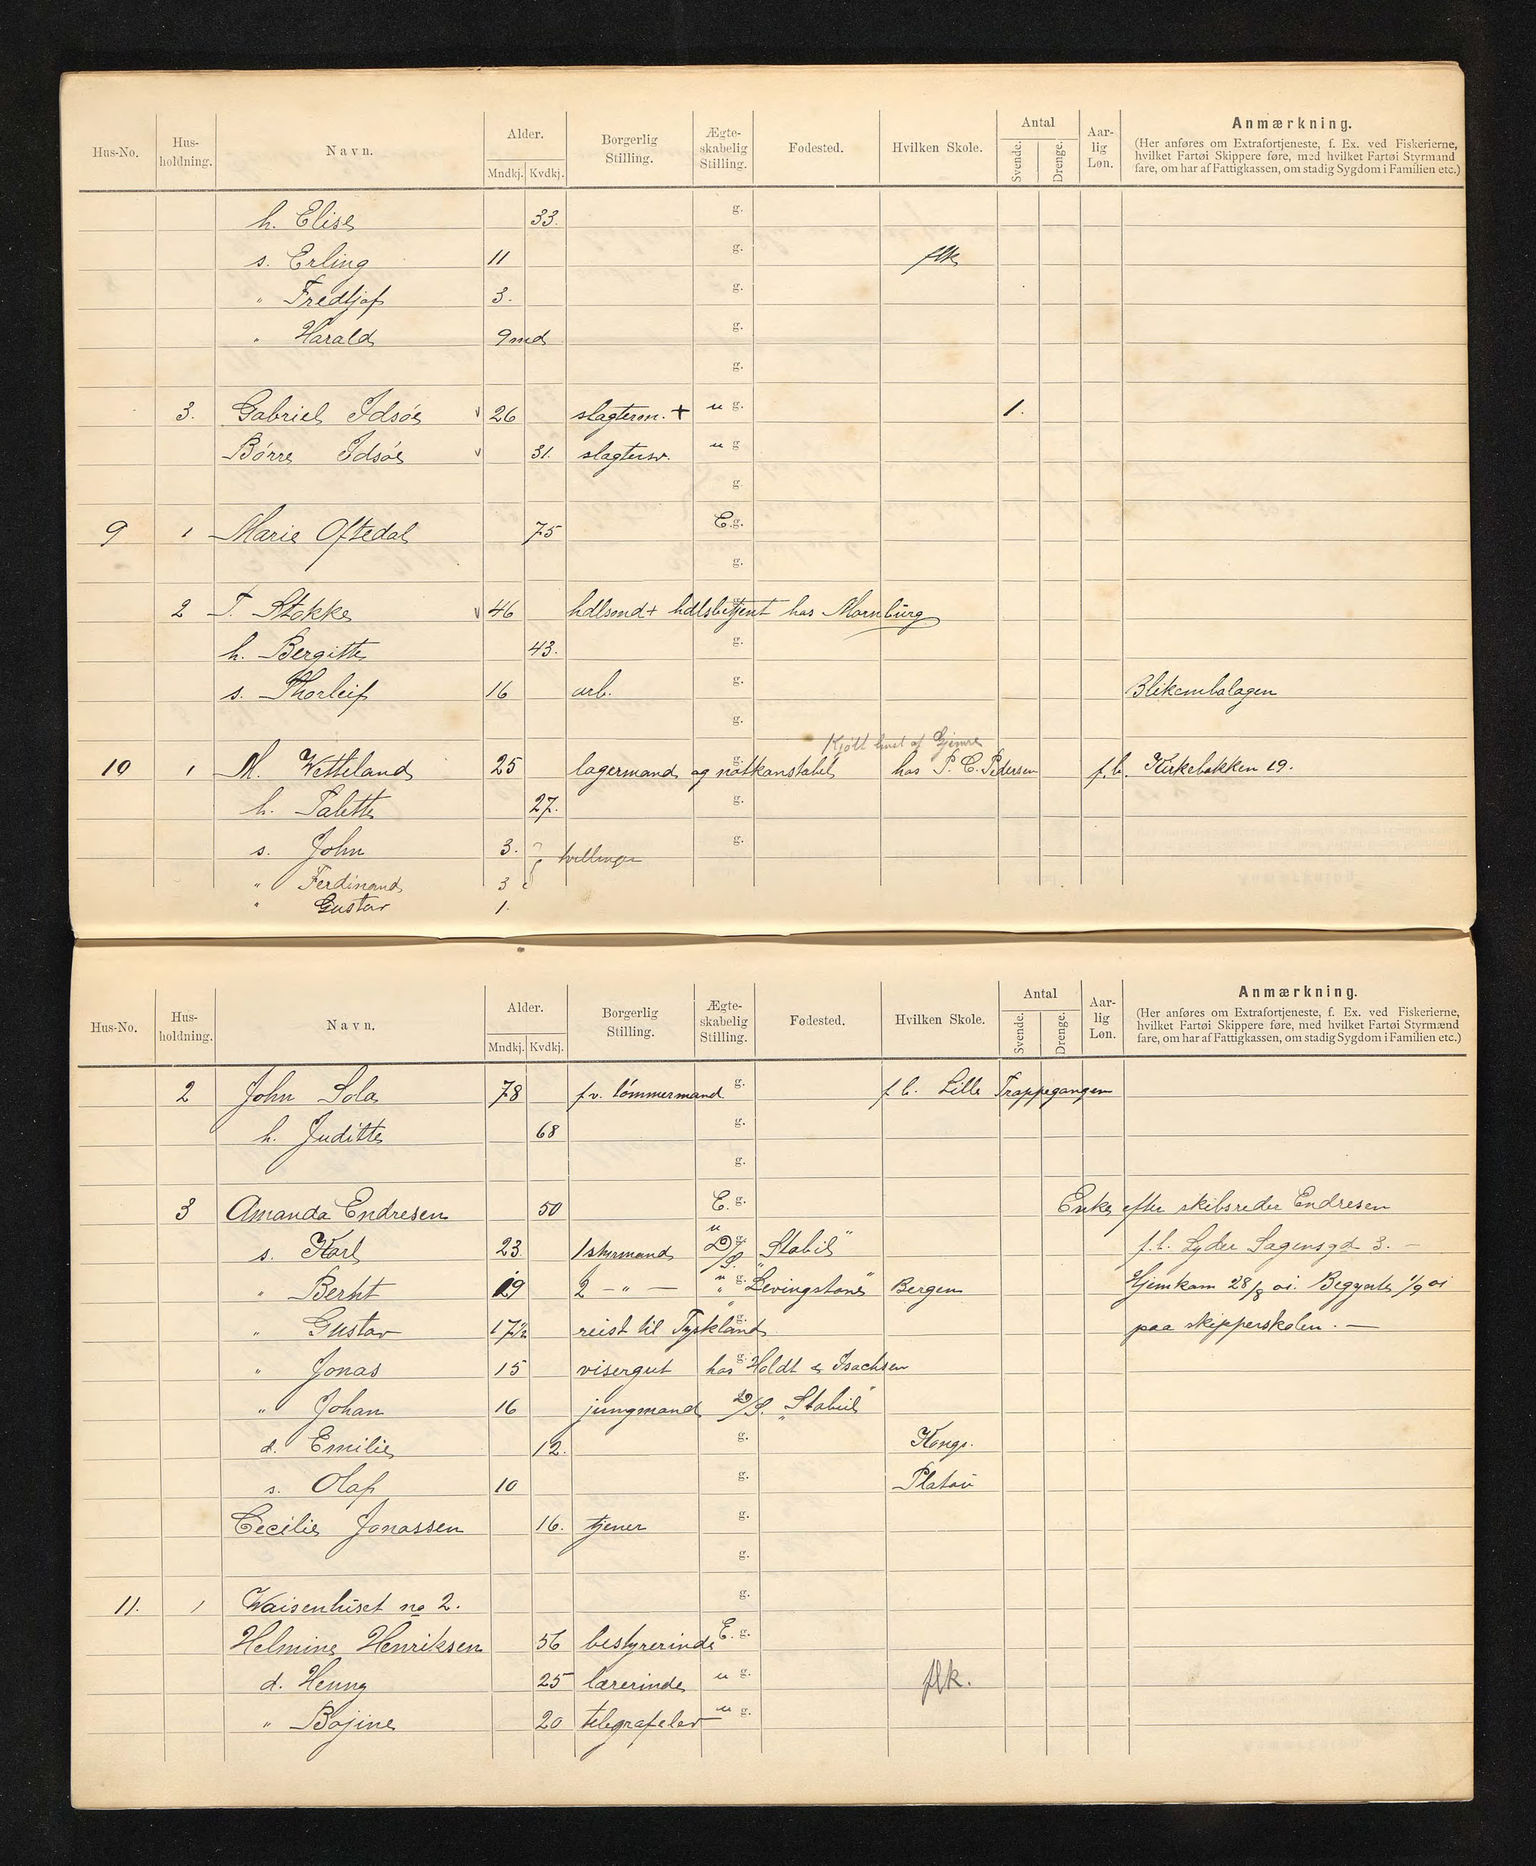 Hus-No. Hus-holdning. Navn. Alder. Mndkj. Kvdkj. Borgerlig Stilling. Ægte-skabelig Stilling. Fødested. Hvilken Skole. Antal Svende. Drenge. Aar-lig Løn. Anmærkning.
(Her anføres om Extrafortjeneste, f. Ex. ved Fiskerierne,
hvilket Fartøi Skippere føre, med hvilket Fartøi Styrmænd
fare, om har af Fattigkassen, om stadig Sygdom i Familien etc.)
h. Elise 33. g.
s. Erling 11 g. flk
" Fredtjof 3. g.
" Harald 9 md g.
g.
3. Gabriel Idsøe v 26 slagterm. + u g. 1.
Børre Idsøe v 31. slagtersv. u g
g.
9 1 Marie Oftedal 75 E. g.
g.
2 T. Stokke v 46 hdlsmd + hdlsbetjent hos Mornburg
h. Bergitte 43. g.
s. Thorleif 16 arb. g. Blikembalagen
g.
Kjølt huset af Gjemre
10 1 M. Wetteland 25 lagermand og natkonstabel hos P. C. Pedersen f.b. Kirkebakken 19.
h. Talette 27. g.
s. John 3. tvillinger g.
" Ferdinand 3
" Gustav 1.
Hus-No. Hus-holdning. Navn. Alder. Mndkj. Kvdkj. Borgerlig Stilling. Ægte-skabelig Stilling. Fødested. Hvilken Skole. Antal Svende. Drenge. Aar-lig Løn. Anmærkning.
(Her anføres om Extrafortjeneste, f. Ex. ved Fiskerierne,
hvilket Fartøi Skippere føre, med hvilket Fartøi Styrmænd
fare, om har af Fattigkassen, om stadig Sygdom i Familien etc.)
2 John Sola 78 fv. tømmermand g. f b. Lille Trappegangen
h. Juditte 68 g.
g.
3 Amanda Endresen 50 E. g. Enke efter skibsreder Endresen
s. Karl 23 1 styrmand u D/S. "Stabil" f.b. Lyder Sagensgd 3. —
" Bernt 19 2 — " — u g. " "Levingstone" Bergen Hjemkom 28/8 01. Begynte 1/9 01
" Gustav 17½ reist til Tyskland g. paa skipperskolen. —
" Jonas 15 visergut hos Holdt & Isachsen
" Johan 16 jungmand D/S. "Stabil"
d. Emilie 12. g. Kongs.
s. Olaf 10 g. Platou
Cecilie Jonassen 16. tjener g.
g.
11. 1 Waisenhuset no 2. g.
Helmine Henriksen 56 bestyrerinde E. g.
d. Henny 25 lærerinde u g. flk.
" Bojine 20 telegrafelev u g.